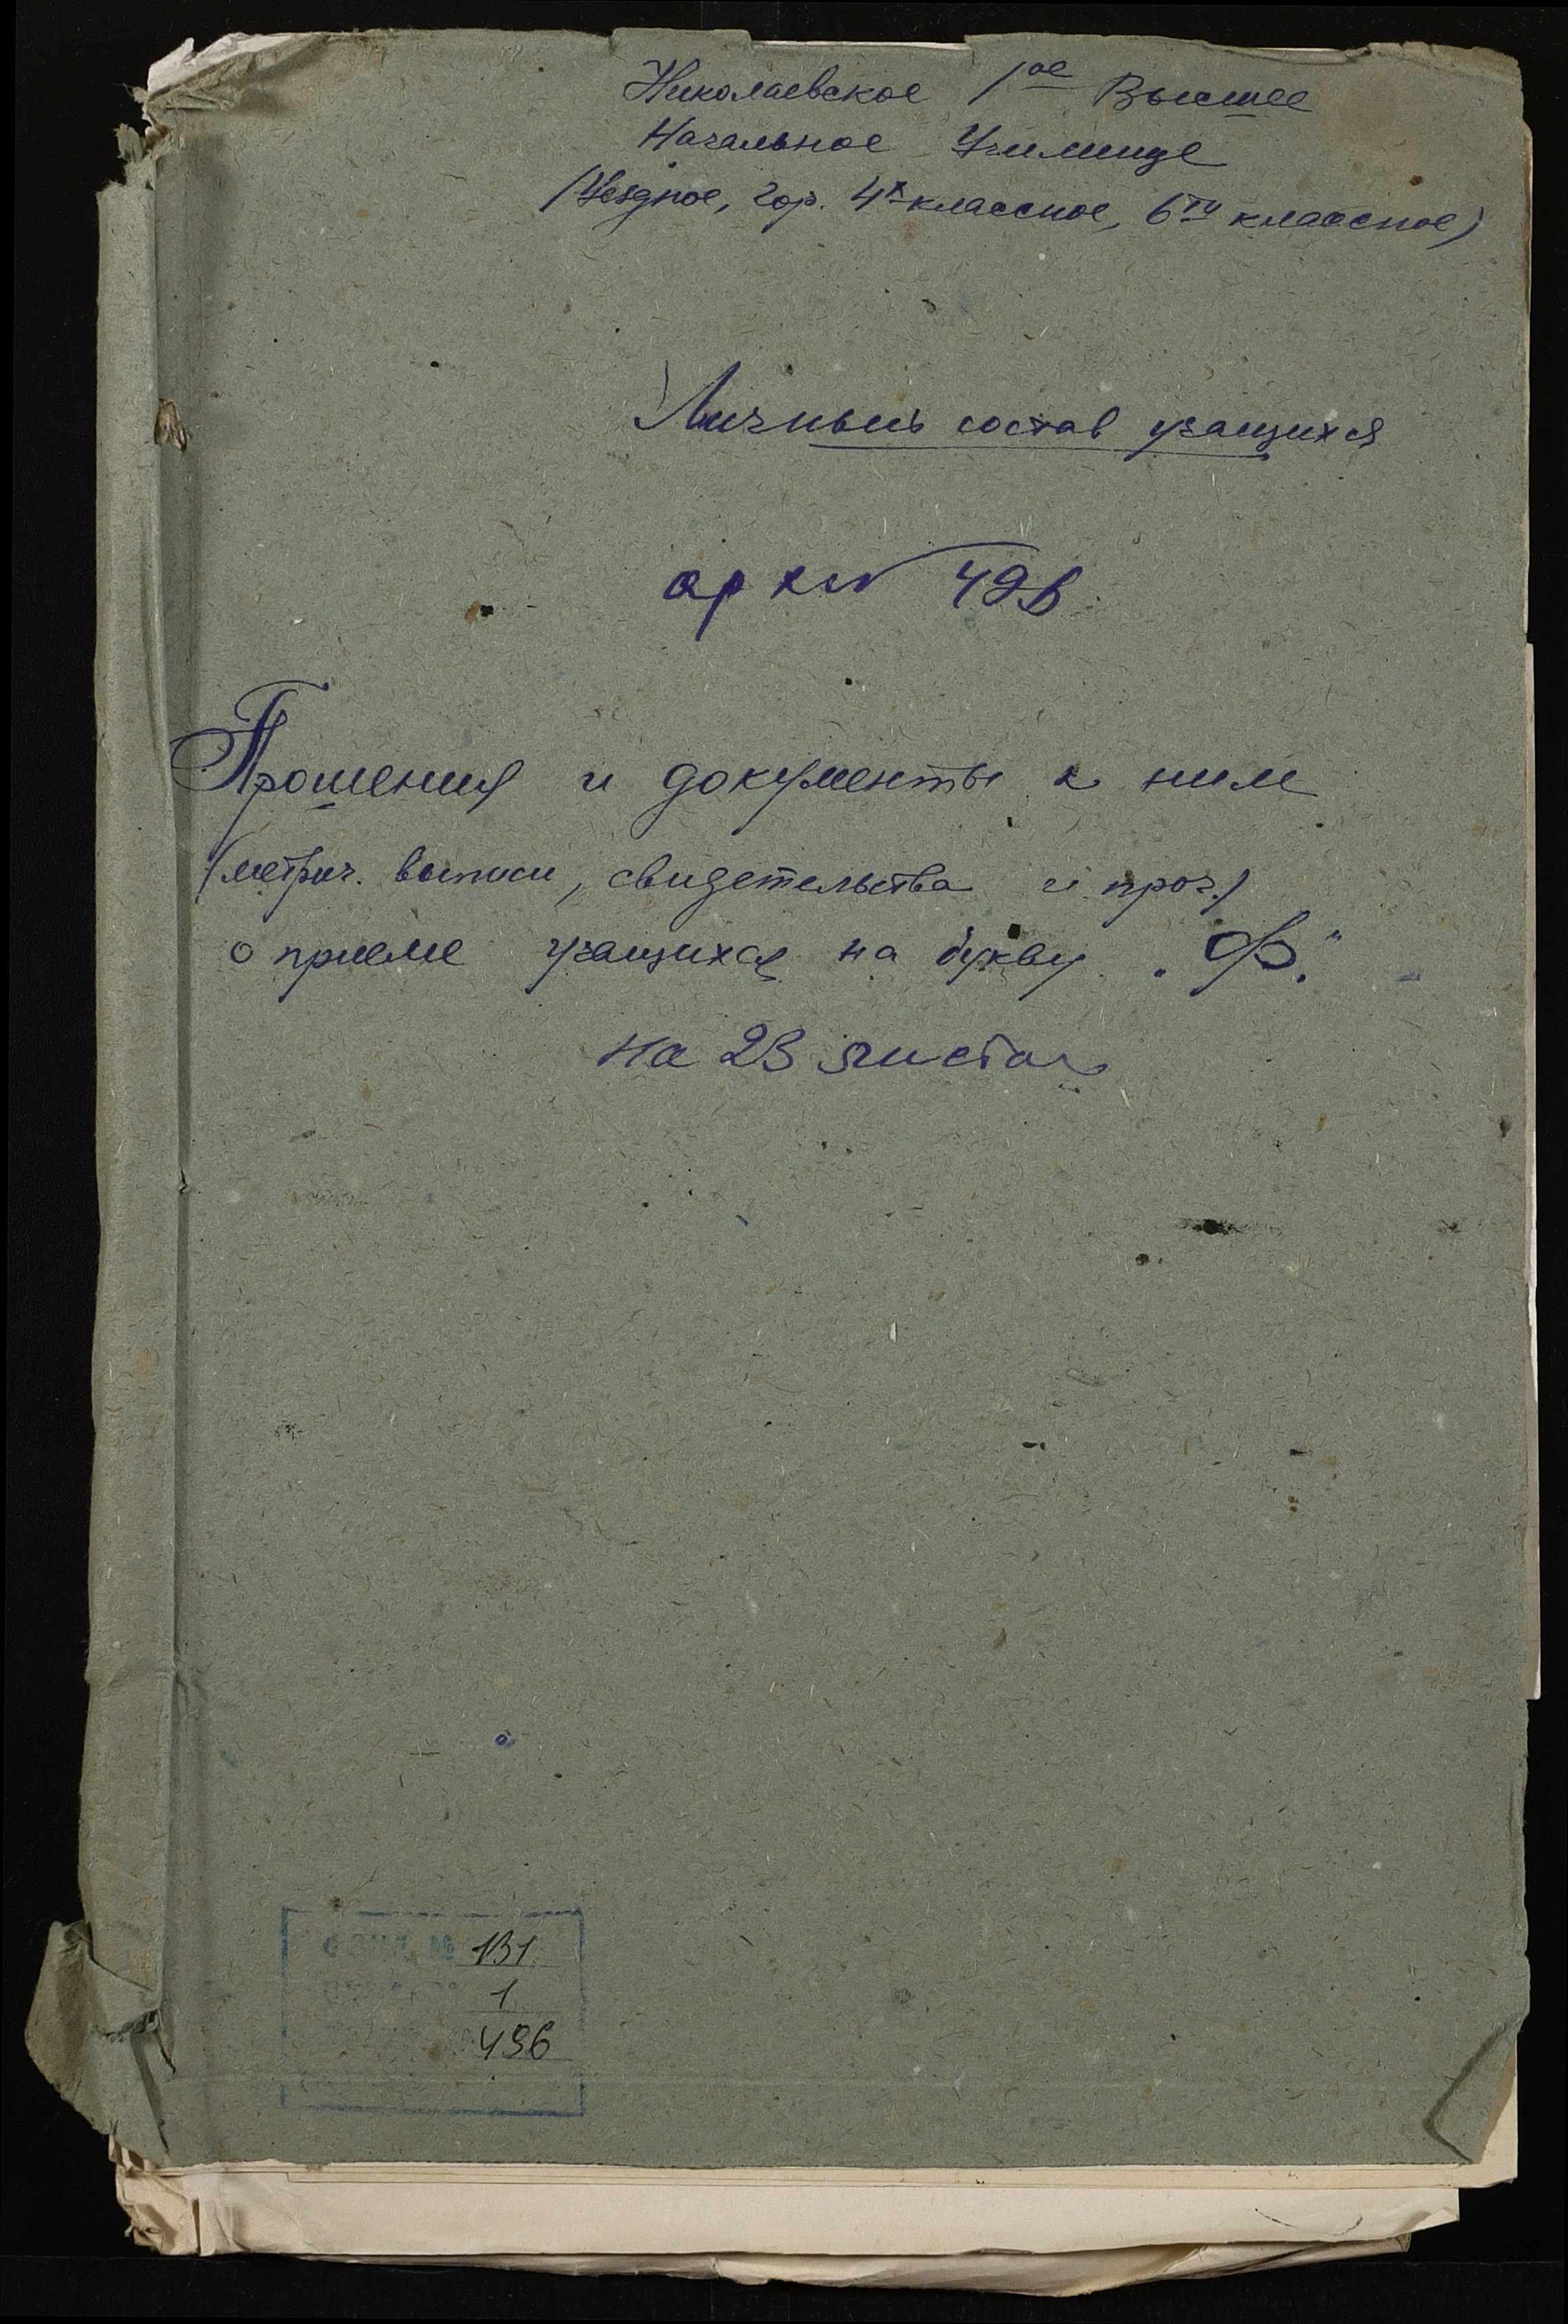 Николаевское 1ое Высшее
Начальное Училище
(Уездное, гор. 4х классное, 6ти классное)
Личный состав учащихся
арх № 496
Прошения и документы к ним
(метрич. выписи, свидетельства и проч.)
о приеме учащихся на букву „Ф."
на 23 листах
ФОНД № 131
1
496